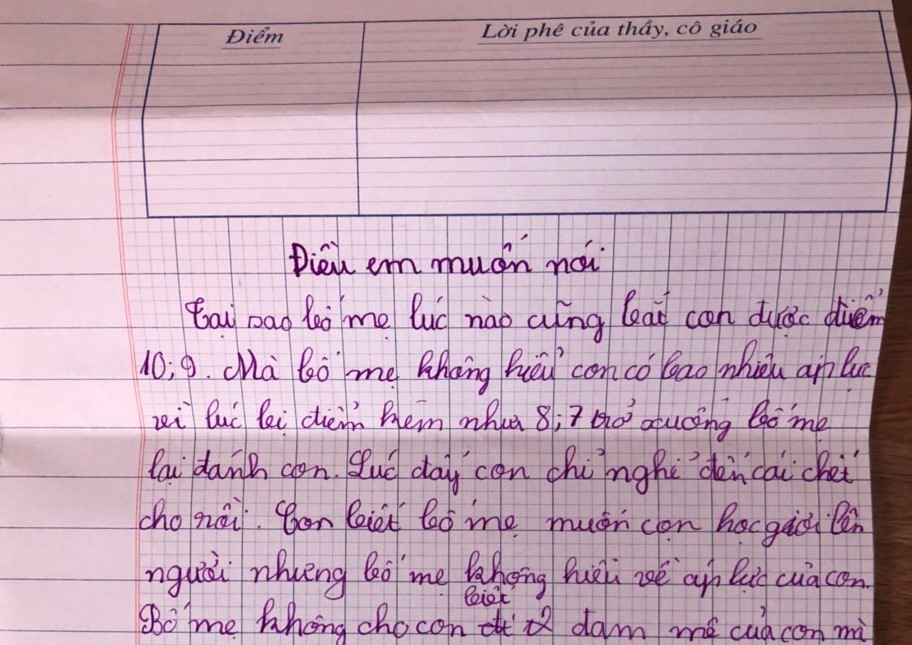 Điểm
Lời phê của thầy, cô giáo
Điều em muốn nói
Tại sao bố mẹ lúc nào cũng bắt con được điểm
10; 9. Mà bố mẹ không hiểu con có bao nhiêu áp lực
vì lúc bị điểm kém như 8; 7 trở xuống bố mẹ
lại đánh con. Lúc đấy con chỉ nghĩ đến cái chết
cho rồi. Con biết bố mẹ muốn con học giỏi lên
người nhưng bố mẹ không hiểu về áp lực của con.
biết
Bố mẹ không cho con đam mê của con mà